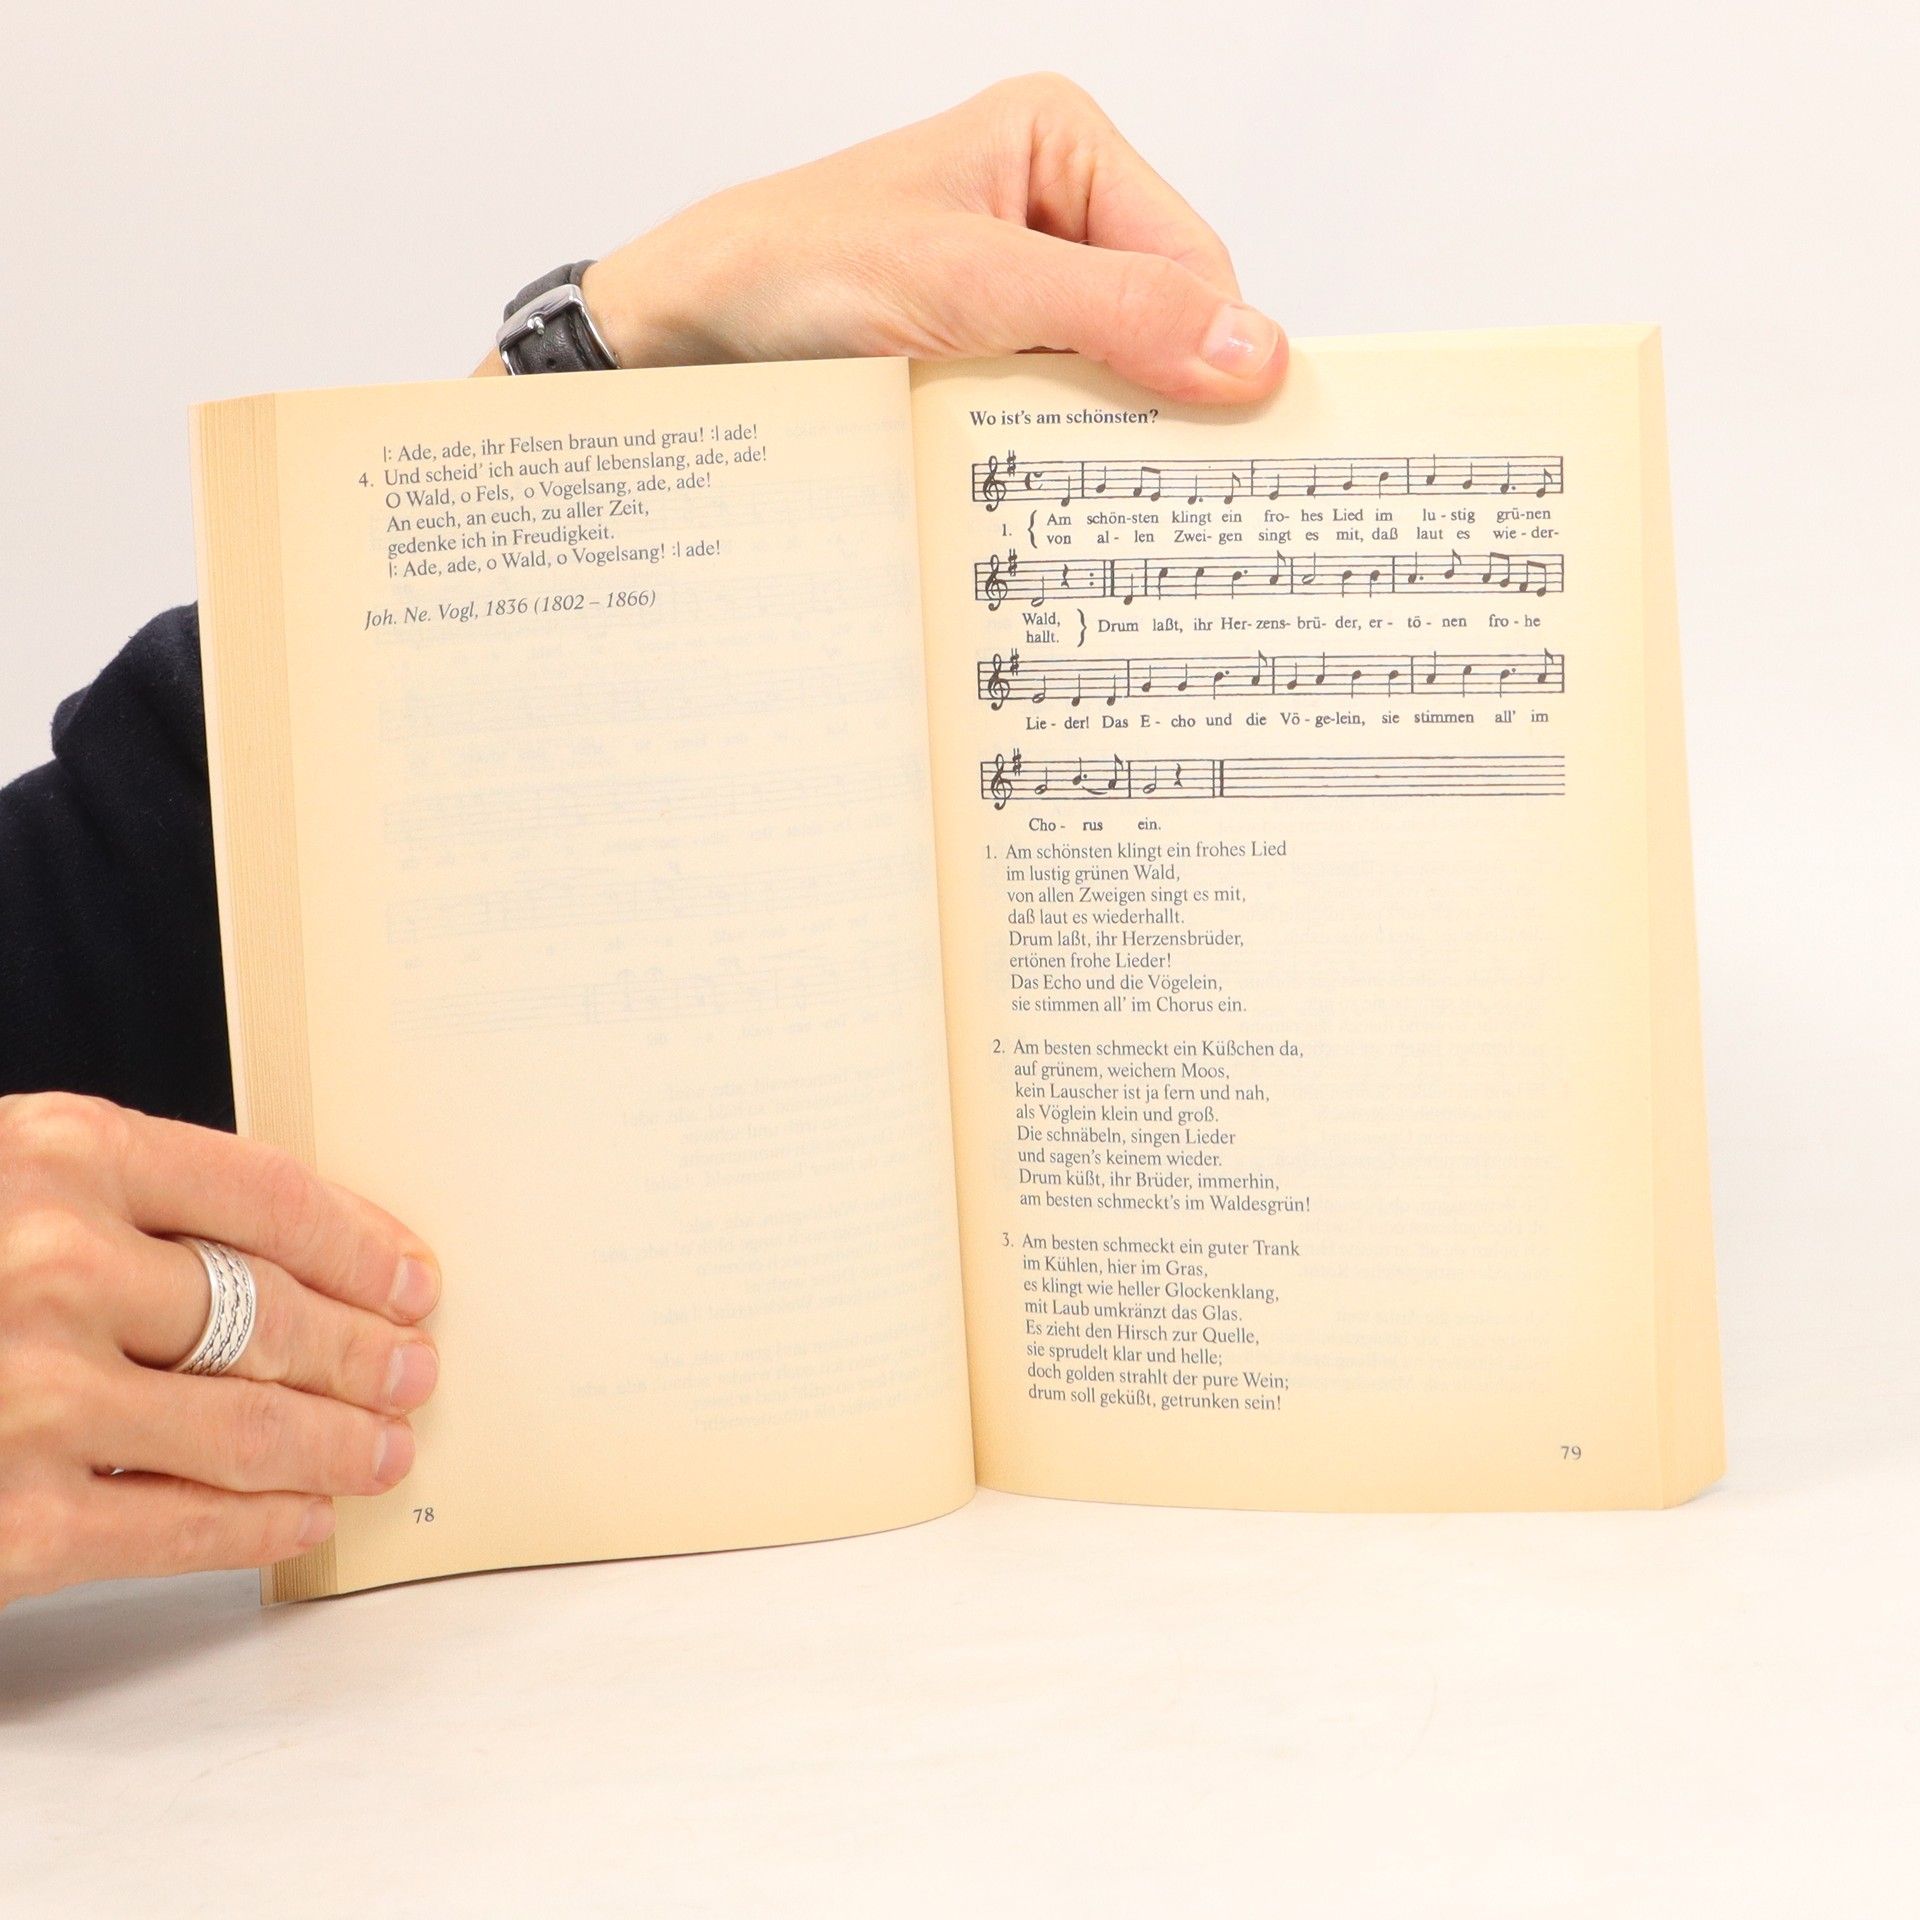 |: Ade, ade, ihr Felsen braun und grau! :| ade!
4. Und scheid' ich auch auf lebenslang, ade, ade!
O Wald, o Fels, o Vogelsang, ade, ade!
An euch, an euch, zu aller Zeit,
gedenke ich in Freudigkeit.
|: Ade, ade, o Wald, o Vogelsang! :| ade!
Joh. Ne. Vogl, 1836 (1802 – 1866)
78
Wo ist's am schönsten?
1. { Am schön-sten klingt ein fro- hes Lied im lu - stig grü-nen
von al - len Zwei- gen singt es mit, daß laut es wie - der-
Wald, } Drum laßt, ihr Her- zens- brü- der, er - tö - nen fro - he
hallt.
Lie - der! Das E - cho und die Vö - ge-lein, sie stimmen all' im
Cho - rus ein.
1. Am schönsten klingt ein frohes Lied
im lustig grünen Wald,
von allen Zweigen singt es mit,
daß laut es wiederhallt.
Drum laßt, ihr Herzensbrüder,
ertönen frohe Lieder!
Das Echo und die Vögelein,
sie stimmen all' im Chorus ein.
2. Am besten schmeckt ein Küßchen da,
auf grünem, weichem Moos,
kein Lauscher ist ja fern und nah,
als Vöglein klein und groß.
Die schnäbeln, singen Lieder
und sagen's keinem wieder.
Drum küßt, ihr Brüder, immerhin,
am besten schmeckt's im Waldesgrün!
3. Am besten schmeckt ein guter Trank
im Kühlen, hier im Gras,
es klingt wie heller Glockenklang,
mit Laub umkränzt das Glas.
Es zieht den Hirsch zur Quelle,
sie sprudelt klar und helle;
doch golden strahlt der pure Wein;
drum soll geküßt, getrunken sein!
79